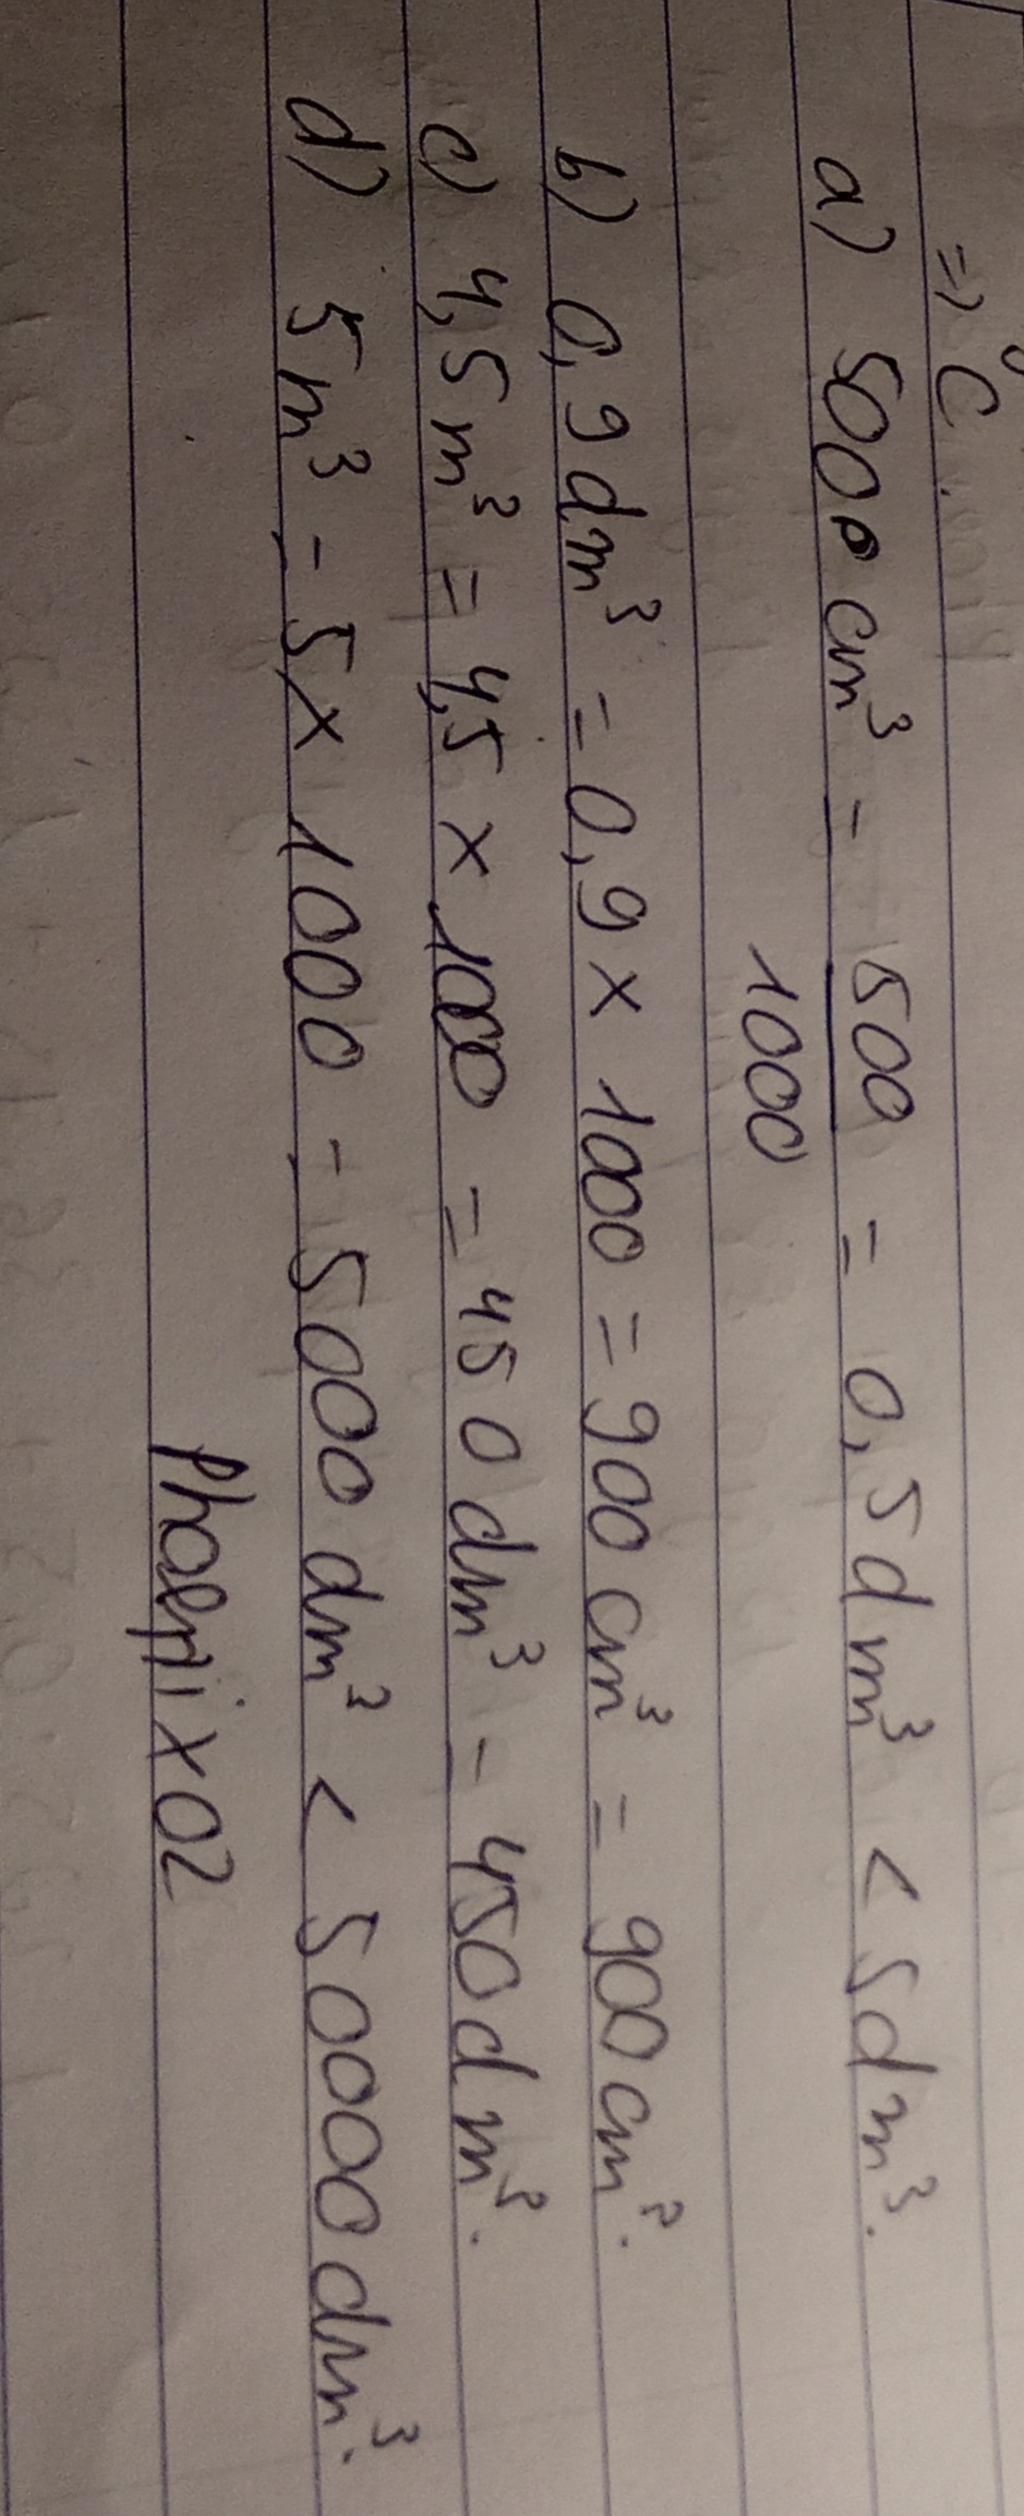 => C.
a) 500 cm³ = 500/1000 = 0,5 dm³ < 5 dm³.
b) 0,9 dm³ = 0,9 x 1000 = 900 cm³ = 900 cm³.
c) 4,5 m³ = 4,5 x 1000 = 450 dm³ = 450 dm³.
d) 5 m³ = 5 x 1000 = 5000 dm³ < 50000 dm³.
Phoenix02